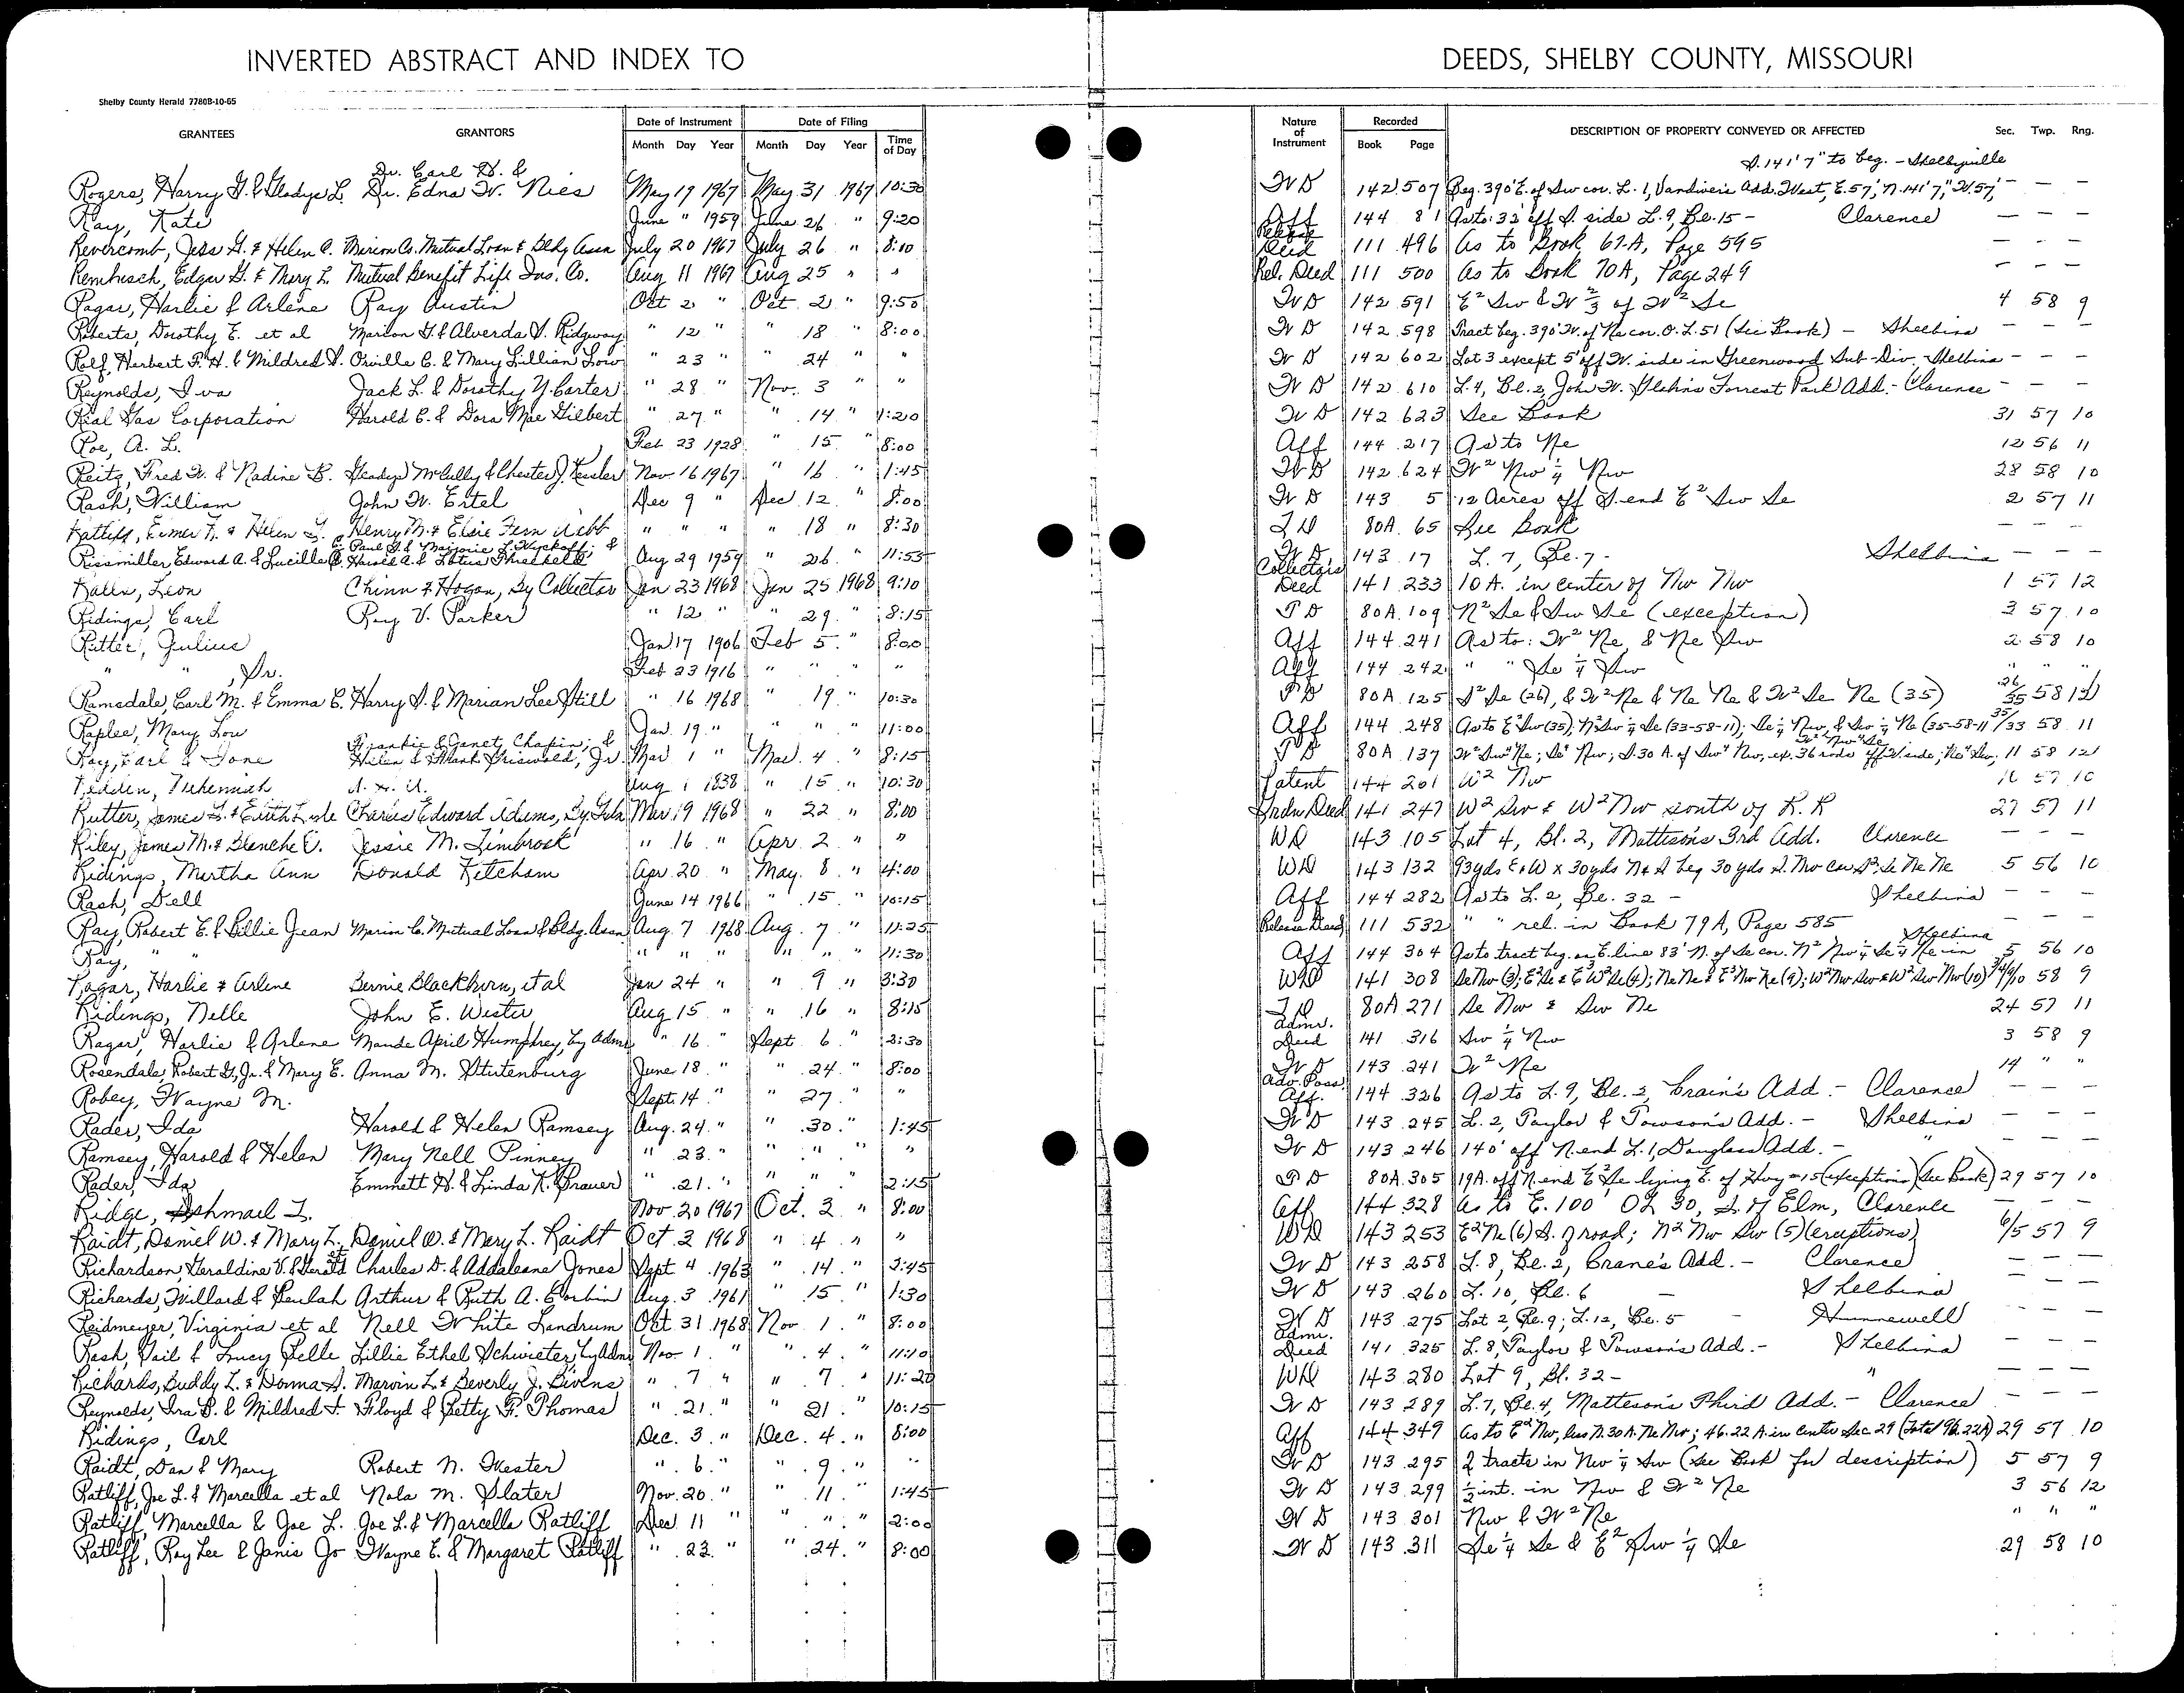 INVERTED ABSTRACT AND INDEX TO DEEDS, SHELBY COUNTY, MISSOURI
Shelby County Herald 7780B-10-65
GRANTEES GRANTORS Date of Instrument Date of Filing Time of Day Nature of Instrument Recorded DESCRIPTION OF PROPERTY CONVEYED OR AFFECTED Sec. Twp. Rng.
Month Day Year Month Day Year Book Page
Dr. Carl D. & S. 141' 7" to beg. - Shelbyville
Rogers, Harry G. & Gladys L. Dr. Edna W. Nies May 19 1967 May 31 1967 10:30 WD 142 507 Beg. 390' E. of Sw cor. L. 1, Vandiver's Add. West, E. 57', N. 141' 7", W. 57', — — —
Ray, Kate June " 1959 June 26 " 9:20 Aff 144 81 As to: 32' off S. side L. 9, Bl. 15 - Clarence — — —
Revercomb, Jess G. & Helen C. Marion Co. Mutual Loan & Bldg Assn July 20 1967 July 26 " 8:10 Release Deed 111 496 As to Book 67A, Page 595 — — —
Rembusch, Edgar G. & Mary L. Mutual Benefit Life Ins. Co. Aug 11 1967 Aug 25 " " Rel. Deed 111 500 As to Book 70A, Page 249 — — —
Ragar, Harlie & Arlene Ray Austin Oct 2 " Oct. 2 " 9:50 WD 142 591 E² Sw & W ⅔ of W² Se 4 58 9
Roberts, Dorothy E. et al Marion G. & Alverda V. Ridgway " 12 " " 18 " 8:00 WD 142 598 Tract beg. 390' W. of Ne cor. O.L. 51 (See Book) - Shelbina — — —
Rolf, Herbert F. H. & Mildred V. Orville C. & Mary Lillian Low " 23 " " 24 " " WD 142 602 Lot 3 except 5' off W. side in Greenwood Sub-Div. - Shelbina — — —
Reynolds, Iva Jack L. & Dorothy Y. Carter " 28 " Nov. 3 " " WD 142 610 L. 4, Bl. 2, John W. Forrest Park Add. - Clarence — — —
Rial Gas Corporation Harold C. & Dora Mae Gilbert " 27 " " 14 " 1:20 WD 142 623 See Book 31 57 10
Roe, A. L. Feb 23 1928 " 15 " 8:00 Aff 144 217 As to Ne 12 56 11
Reitz, Fred W. & Nadine B. Gladys McCully & Chester J. Kessler Nov 16 1967 " 16 " 1:45 WD 142 624 W² Nw ¼ Nw 28 58 10
Rash, William John W. Ertel Dec 9 " Dec. 12 " 8:00 WD 143 5 12 Acres off S. end E² Sw Se 2 57 11
Ratliff, Elmer F. & Helen L. Henry M. & Elsie Fern Webb " " " " 18 " 8:30 TD 80A 65 See Book — — —
Rissmiller, Edward A. & Lucille C. Paul G. & Marjorie L. Wyckoff; & Harold A. & Lotus Threlkeld Aug 29 1959 " 26 " 11:53 WD 143 17 L. 7, Bl. 7 - Shelbina — — —
Leon Chinn & Hogan, By Collector Jan 23 1968 Jan 25 1968 9:10 Collector's Deed 141 233 10 A. in center of Nw Nw 1 57 12
Ridings, Carl Roy V. Parker " 12 " " 29 " 8:15 TD 80A 109 N² Se & Sw Se (exception) 3 57 10
Ritter, Julius Jan. 17 1906 Feb 5 " 8:00 Aff 144 241 As to: W² Ne, & Ne Sw 2 58 10
" " , Sr. Feb 23 1916 " " " " Aff 144 242 " " Se ¼ Sw " " "
Ramsdale, Carl M. & Emma C. Harry S. & Marian Lee Still " 16 1968 " 19 " 10:30 TD 80A 125 S² Se (26), & W² Ne & Ne Ne & W² Se Ne (35) 26/35 58 12
Raplee, Mary Lou Jan. 19 " " " " 11:00 Aff 144 248 As to E² Sw (35); N² Sw ¼ Se (33-58-11); Se ¼ Nw, & Sw ¼ Ne (35-58-11) 35/33 58 11
Ray, Earl & Ione Frankie & Janet Chapin; & Helen & Frank Griswold, Jr. Mar 1 " Mar. 4 " 8:15 TD 80A 137 11 58 12
Aug 1 1838 " 15 " 10:30 Patent 144 201 W² Nw 16 57 10
Rutter, James L. & Edith Lisle Charles Edward Adams, By Mar. 19 1968 " 22 " 8:00 Grdn Deed 141 247 W² Sw & W² Nw south of R. R 27 57 11
Riley, James M. & Blanche V. Jessie M. Limbrock " 16 " Apr. 2 " " WD 143 105 Lot 4, Bl. 2, Matteson's 3rd Add. Clarence — — —
Ridings, Mertha Ann Donald Ketcham Apr. 20 " May. 8 " 4:00 WD 143 132 93yds E&W x 30yds N & S beg 30 yds S. Nw cor S² Se Ne Ne 5 56 10
Rash, Dell June 14 1966 " 15 " 10:15 Aff 144 282 As to L. 2, Bl. 32 - Shelbina — — —
Ray, Robert E. & Billie Jean Marion Co. Mutual Loan & Bldg. Assn Aug. 7 1968 Aug. 7 " 11:25 Release Deed 111 532 " " rel. in Book 79A, Page 585 — — —
Ray, " " " " " " " " 11:30 Aff 144 304 As to tract beg. on E. line 83' N. of Se cor. N² Nw ¼ Se ¼ Ne in Shelbina 5 56 10
Ragar, Harlie & Arlene Bernie Blackburn, et al Jan 24 " " 9 " 3:30 WD 141 308 Se Nw (3); E² Se & E³ W² Se (4); Ne Ne & E³ Nw Ne (9); W² Nw Sw & W² Sw Nw (10) 3/4/9/10 58 9
Ridings, Nelle John E. Wester Aug 15 " " 16 " 8:15 TD 80A 271 Se Nw & Sw Ne 24 57 11
Ragar, Harlie & Arlene Maude April Humphrey, by Admr " 16 " Sept 6 " 2:30 Admr. Deed 141 316 Sw ¼ Nw 3 58 9
Rosendale, Robert G., Jr. & Mary E. Anna M. Stutenburg June 18 " " 24 " 8:00 WD 143 241 W² Ne 14 " "
Robey, Wayne M. Sept. 14 " " 27 " " Adv. Poss. Aff. 144 326 As to L. 9, Bl. 2, Crain's Add. - Clarence — — —
Rader, Ida Harold & Helen Ramsey Aug. 24 " " 30 " 1:45 WD 143 245 L. 2, Taylor & Towson's Add. - Shelbina — — —
Ramsey, Harold & Helen Mary Nell Pinney " 23 " " " " " WD 143 246 140' off N. end L. 1, Douglass Add. - " — — —
Rader, Ida Emmett H. & Linda K. Brauer " 21 " " " " 2:15 TD 80A 305 19A. off N. end E² Se lying E. of Hwy #15 (exceptions) (See Book) 29 57 10
Ridge, Ishmael L. Nov. 20 1967 Oct. 2 " 8:00 Aff 144 328 As to E. 100' OL 30, S. of Elm, Clarence — — —
Raidt, Daniel W. & Mary L. Daniel W. & Mary L. Raidt Oct 2 1968 " 4 " " WD 143 253 E² Ne (6) S. of road; N² Nw Sw (5) (exceptions) 6/5 57 9
Richardson, Geraldine V. & Gerald Charles D. & Addaleane Jones Sept 4 1963 " 14 " 2:45 WD 143 258 L. 8, Bl. 2, Crane's Add. - Clarence — — —
Richards, Willard & Beulah Arthur & Ruth A. Corbin Aug. 3 1961 " 15 " 1:30 WD 143 260 L. 10, Bl. 6 - Shelbina — — —
Reidmeyer, Virginia et al Nell White Landrum Oct 31 1968 Nov 1 " 8:00 WD 143 275 Lot 2, Bl. 9; L. 12, Bl. 5 - Hunnewell — — —
Rash, Vail & Lucy Belle Lillie Ethel Schwieter, by Adm Nov. 1 " " 4 " 11:10 Admr. Deed 141 325 L. 8, Taylor & Towson's Add. - Shelbina — — —
Richards, Buddy L. & Donna S. Marvin L. & Beverly J. Bivens " 7 " " 7 " 11:20 WD 143 280 Lot 9, Bl. 32 - " — — —
Reynolds, Ira B. & Mildred I. Floyd & Betty F. Thomas " 21 " " 21 " 10:15 WD 143 289 L. 7, Bl. 4, Matteson's Third Add. - Clarence — — —
Ridings, Carl Dec. 3 " Dec. 4 " 8:00 Aff 144 349 As to E² Nw, less N. 30 A. Ne Nw; 46.22 A. in center Sec 29 (Total 96.22A) 29 57 10
Raidt, Dan & Mary Robert N. Wester " 6 " " 9 " " WD 143 295 2 tracts in Nw ¼ Sw (See Book for description) 5 57 9
Ratliff, Joe L. & Marcella et al Nola M. Slater Nov. 20 " " 11 " 1:45 WD 143 299 ½ int. in Nw & W² Ne 3 56 12
Ratliff, Marcella & Joe L. Joe L. & Marcella Ratliff Dec 11 " " " " 2:00 WD 143 301 Nw & W² Ne " " "
Ratliff, Roy Lee & Janis Jo Wayne E. & Margaret Ratliff " 23 " " 24 " 8:00 WD 143 311 Se ¼ Se & E² Sw ¼ Se 29 58 10